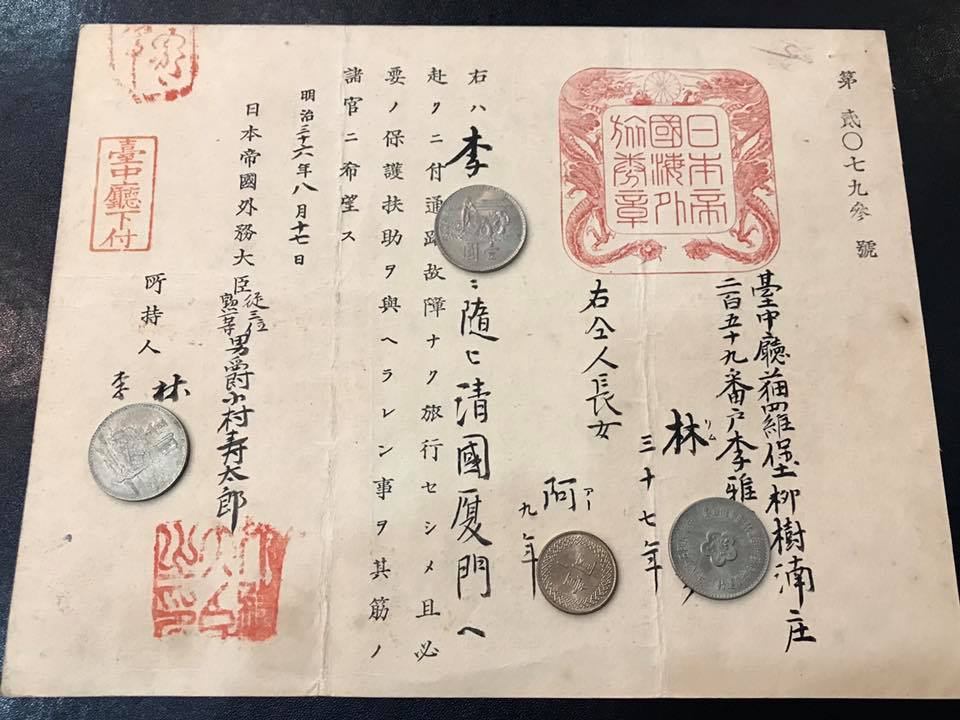 第貳〇七九参號
日本帝
國海外
旅券章
臺中廳猫羅堡柳樹湳庄
二百五十九番戸李雅
林
リム
三十七年
右仝人長女
阿
アー
九年
右ハ李
ニ隨ヒ清國厦門ヘ
赴クニ付通路故障ナク旅行セシメ且必
要ノ保護扶助ヲ與ヘラレン事ヲ其筋ノ
諸官ニ希望ス
明治三十六年八月十七日
日本帝國外務大臣従三位勲一等男爵小村寿太郎
所持人
林
李
臺中廳下付